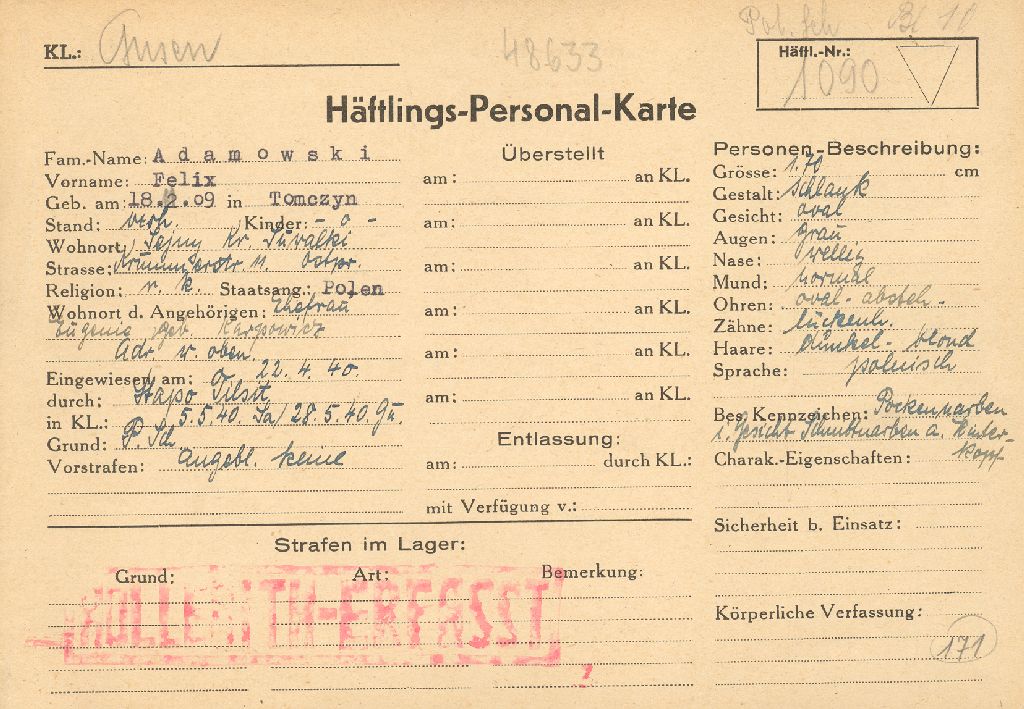 Pol. Sch Bl 10
KL.: Gusen
48633
Häftl.-Nr.:
1090
Häftlings-Personal-Karte
Fam.-Name: Adamowski
Vorname: Felix
Geb. am: 18.2.09 in Tomczyn
Stand: verh. Kinder: - o -
Wohnort: Sejny Kr. Suwalki
Strasse: 11. Ostpr.
Religion: r. k. Staatsang.: Polen
Wohnort d. Angehörigen: Ehefrau
Eugenie geb. Karpowicz
Adr. w. oben.
Eingewiesen am: 22.4.40.
durch: Stapo Tilsit
in KL.: 5.5.40. Sa/ 28.5.40. Gu.
Grund: P. Sch
Vorstrafen: angebl. keine
Überstellt
am: an KL.
am: an KL.
am: an KL.
am: an KL.
am: an KL.
am: an KL.
Entlassung:
am: durch KL.:
mit Verfügung v.:
Personen-Beschreibung:
Grösse: 1.70 cm
Gestalt: schlank
Gesicht: oval
Augen: grau
Nase: wellig
Mund: normal
Ohren: oval - absteh.-
Zähne: lückenh.
Haare: dunkel-blond
Sprache: polnisch
Bes. Kennzeichen: Pockennarben
i. Gesicht Schnittnarben a. Hinter-
kopf
Charak.-Eigenschaften:
Sicherheit b. Einsatz:
Körperliche Verfassung:
171
Strafen im Lager:
Grund: Art: Bemerkung:
HOLLERITH-ERFASST